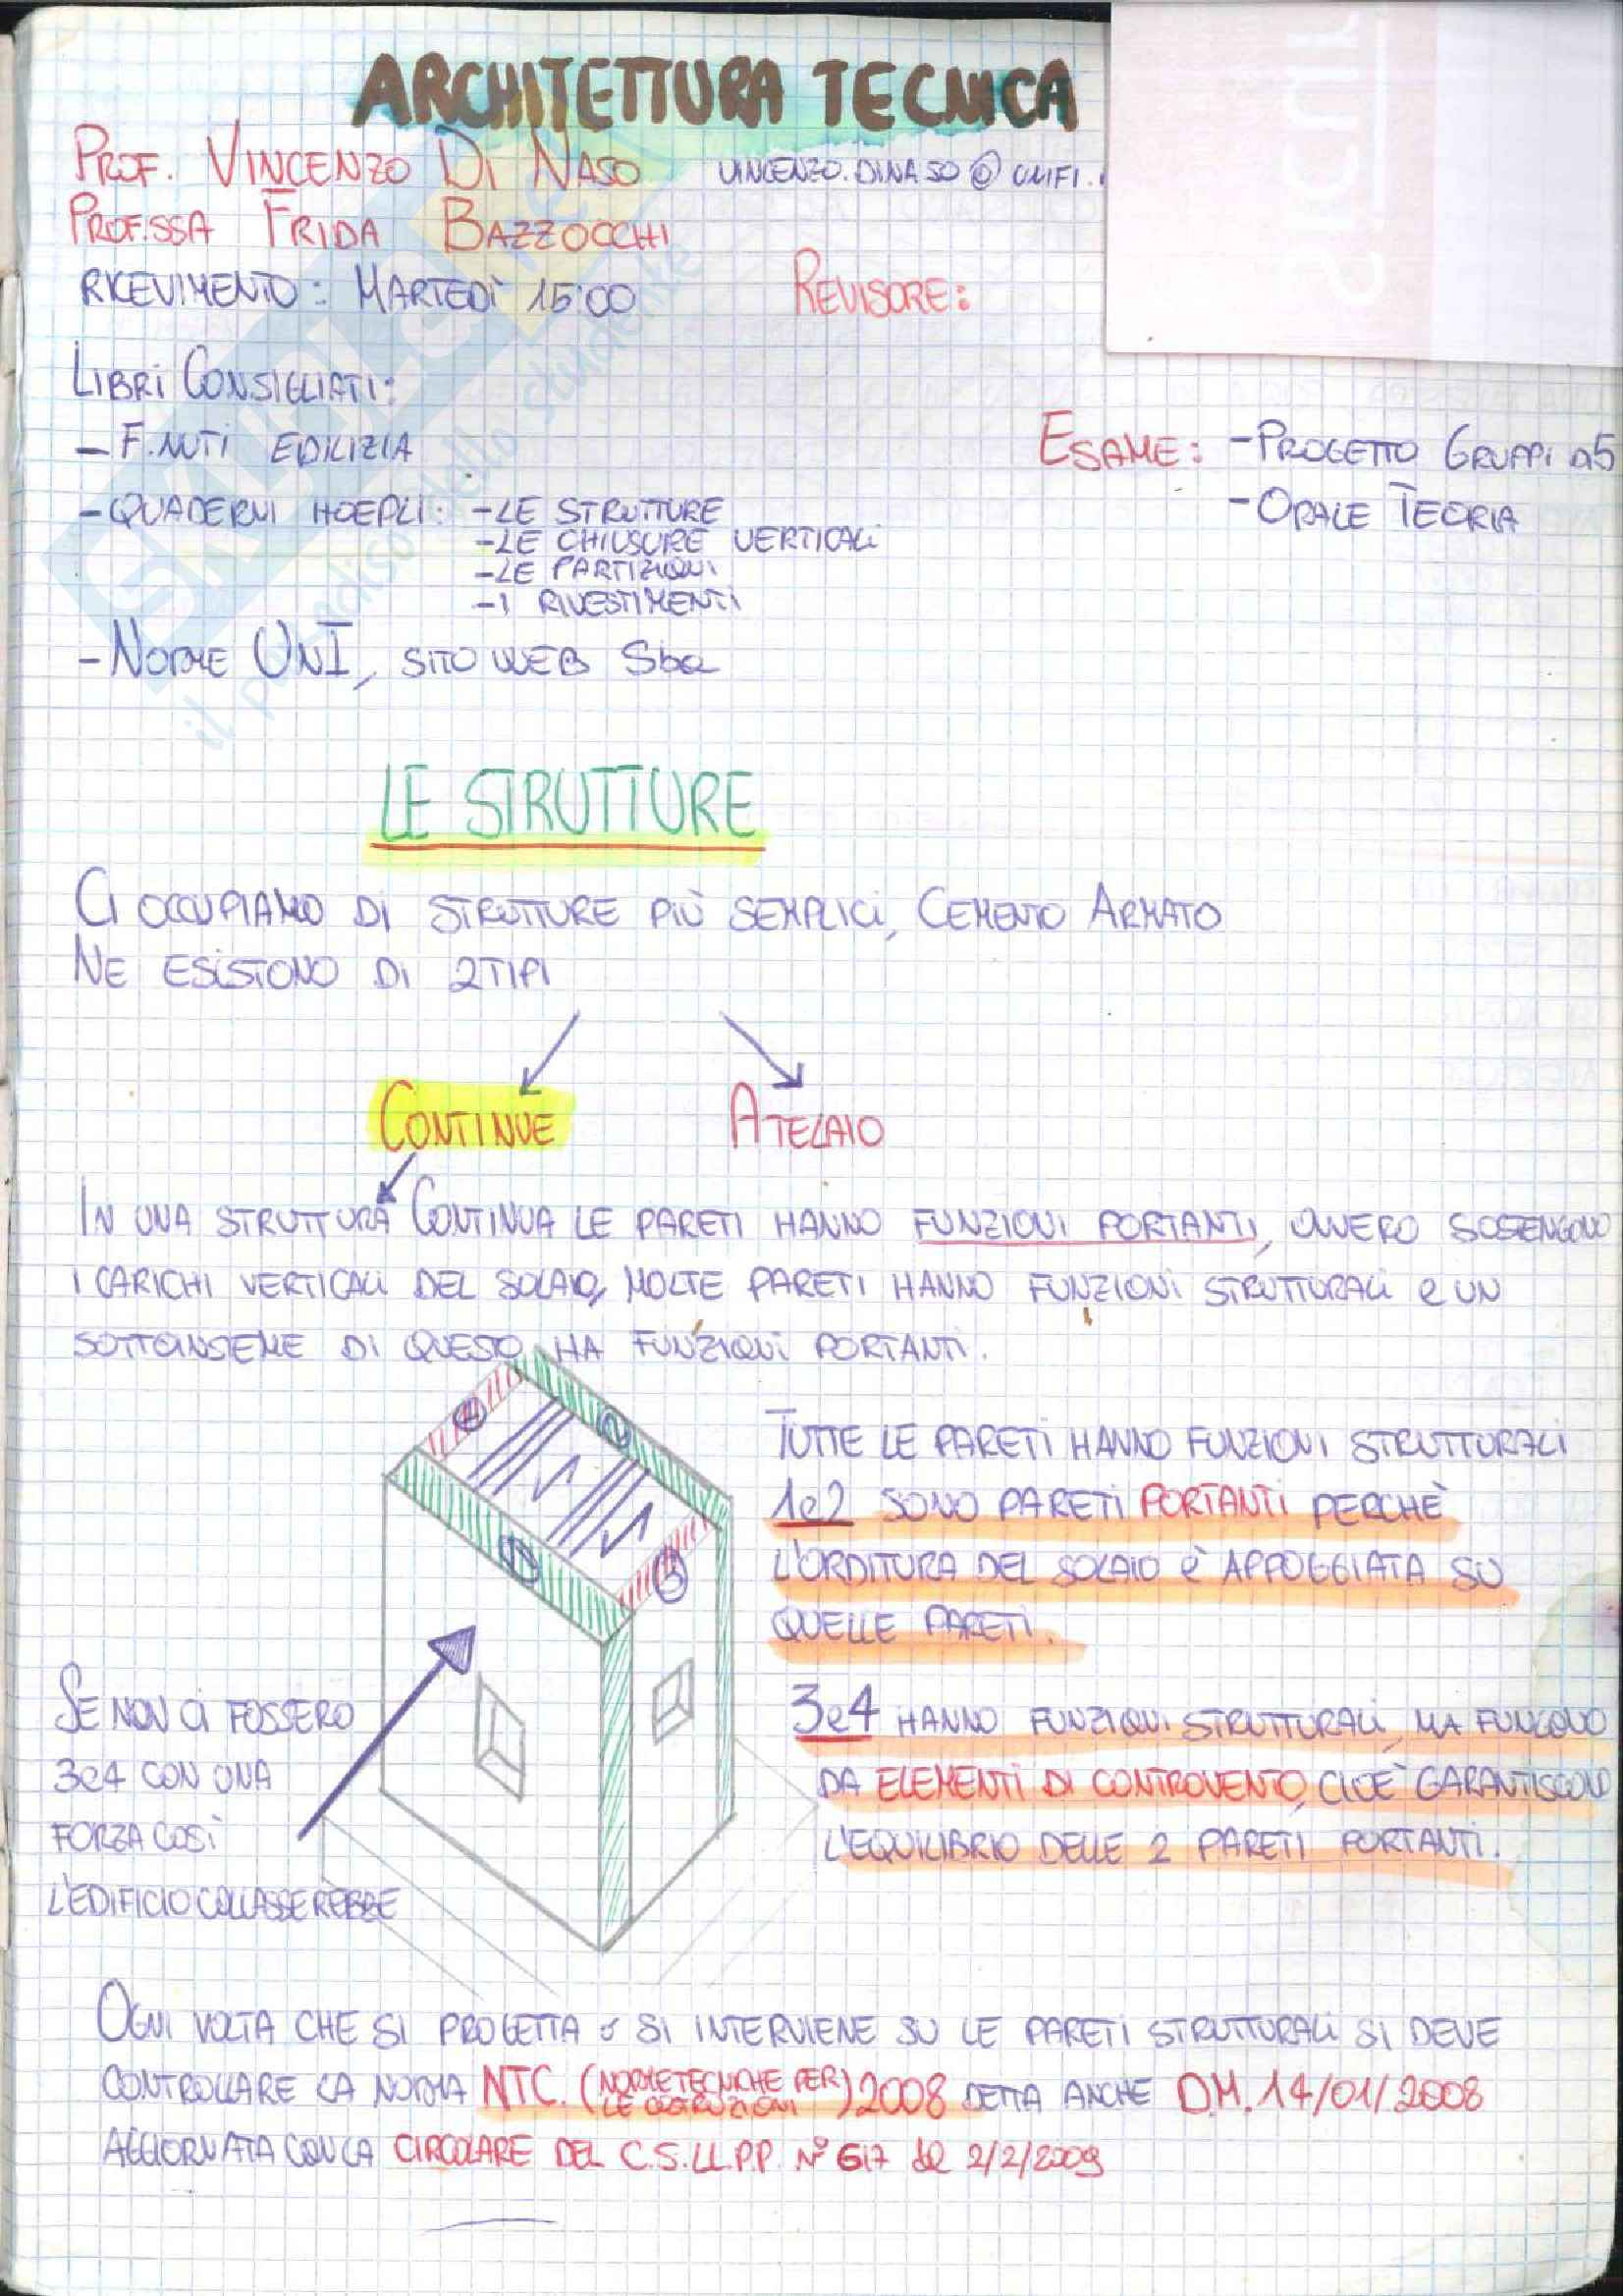 ARCHITETTURA TECNICA
PROF. VINCENZO DI NASO VINCENZO.DINASO@UNIFI.
PROF.SSA FRIDA BAZZOCCHI
RICEVIMENTO: MARTEDÌ 15:00 REVISORE:
LIBRI CONSIGLIATI:
- F. NUTI EDILIZIA
ESAME: - PROGETTO GRUPPI a 5
- QUADERNI HOEPLI: - LE STRUTTURE
- ORALE TEORIA
- LE CHIUSURE VERTICALI
- LE PARTIZIONI
- I RIVESTIMENTI
- NORME UNI, SITO WEB Sba
SKUOLA.NET
il paradiso dello studente
LE STRUTTURE
CI OCCUPIAMO DI STRUTTURE PIÙ SEMPLICI, CEMENTO ARMATO
NE ESISTONO DI 2 TIPI
CONTINUE A TELAIO
IN UNA STRUTTURA CONTINUA LE PARETI HANNO FUNZIONI PORTANTI, OVVERO SOSTENGONO
I CARICHI VERTICALI DEL SOLAIO, MOLTE PARETI HANNO FUNZIONI STRUTTURALI e UN
SOTTOINSIEME DI QUESTO HA FUNZIONI PORTANTI.
4 2
1 3
TUTTE LE PARETI HANNO FUNZIONI STRUTTURALI
1e2 SONO PARETI PORTANTI PERCHÈ
L'ORDITURA DEL SOLAIO è APPOGGIATA SU
QUELLE PARETI.
3e4 HANNO FUNZIONI STRUTTURALI, MA FUNGONO
DA ELEMENTI DI CONTROVENTO, CIOÈ GARANTISCONO
L'EQUILIBRIO DELLE 2 PARETI PORTANTI.
SE NON CI FOSSERO
3e4 CON UNA
FORZA COSÌ
L'EDIFICIO COLLASSEREBBE
OGNI VOLTA CHE SI PROGETTA o SI INTERVIENE SU LE PARETI STRUTTURALI SI DEVE
CONTROLLARE LA NORMA NTC. (NORME TECNICHE PER LE COSTRUZIONI) 2008 DETTA ANCHE D.M. 14/01/2008
AGGIORNATA CON LA CIRCOLARE DEL C.S.LL.PP. N° 617 del 2/2/2009